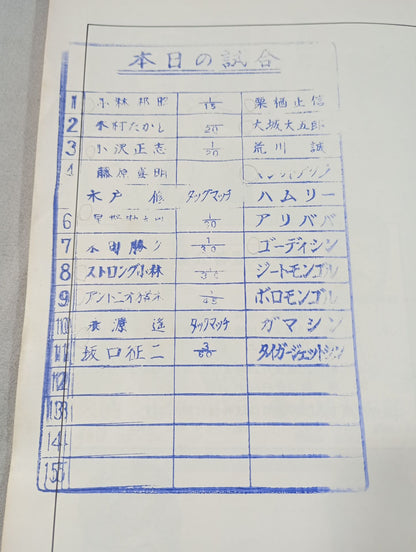 本日の試合
1 小林邦昭 1/15 栗栖正信
2 木村たかし /20 大城大五郎
3 小沢正志 1/20 荒川 誠
4 藤原喜明
木戸 修 タッグマッチ ハムリー
6 1/20 アリババ
7 木田勝 1/30 ゴーディシン
8 ストロング小林 /30 ジートモンゴル
9 アントニオ猪木 1/45 ボロモンゴル
110 永源 遥 タッグマッチ ガマシン
111 坂口征二 3/60 タイガージェットシン
112
133
144
155